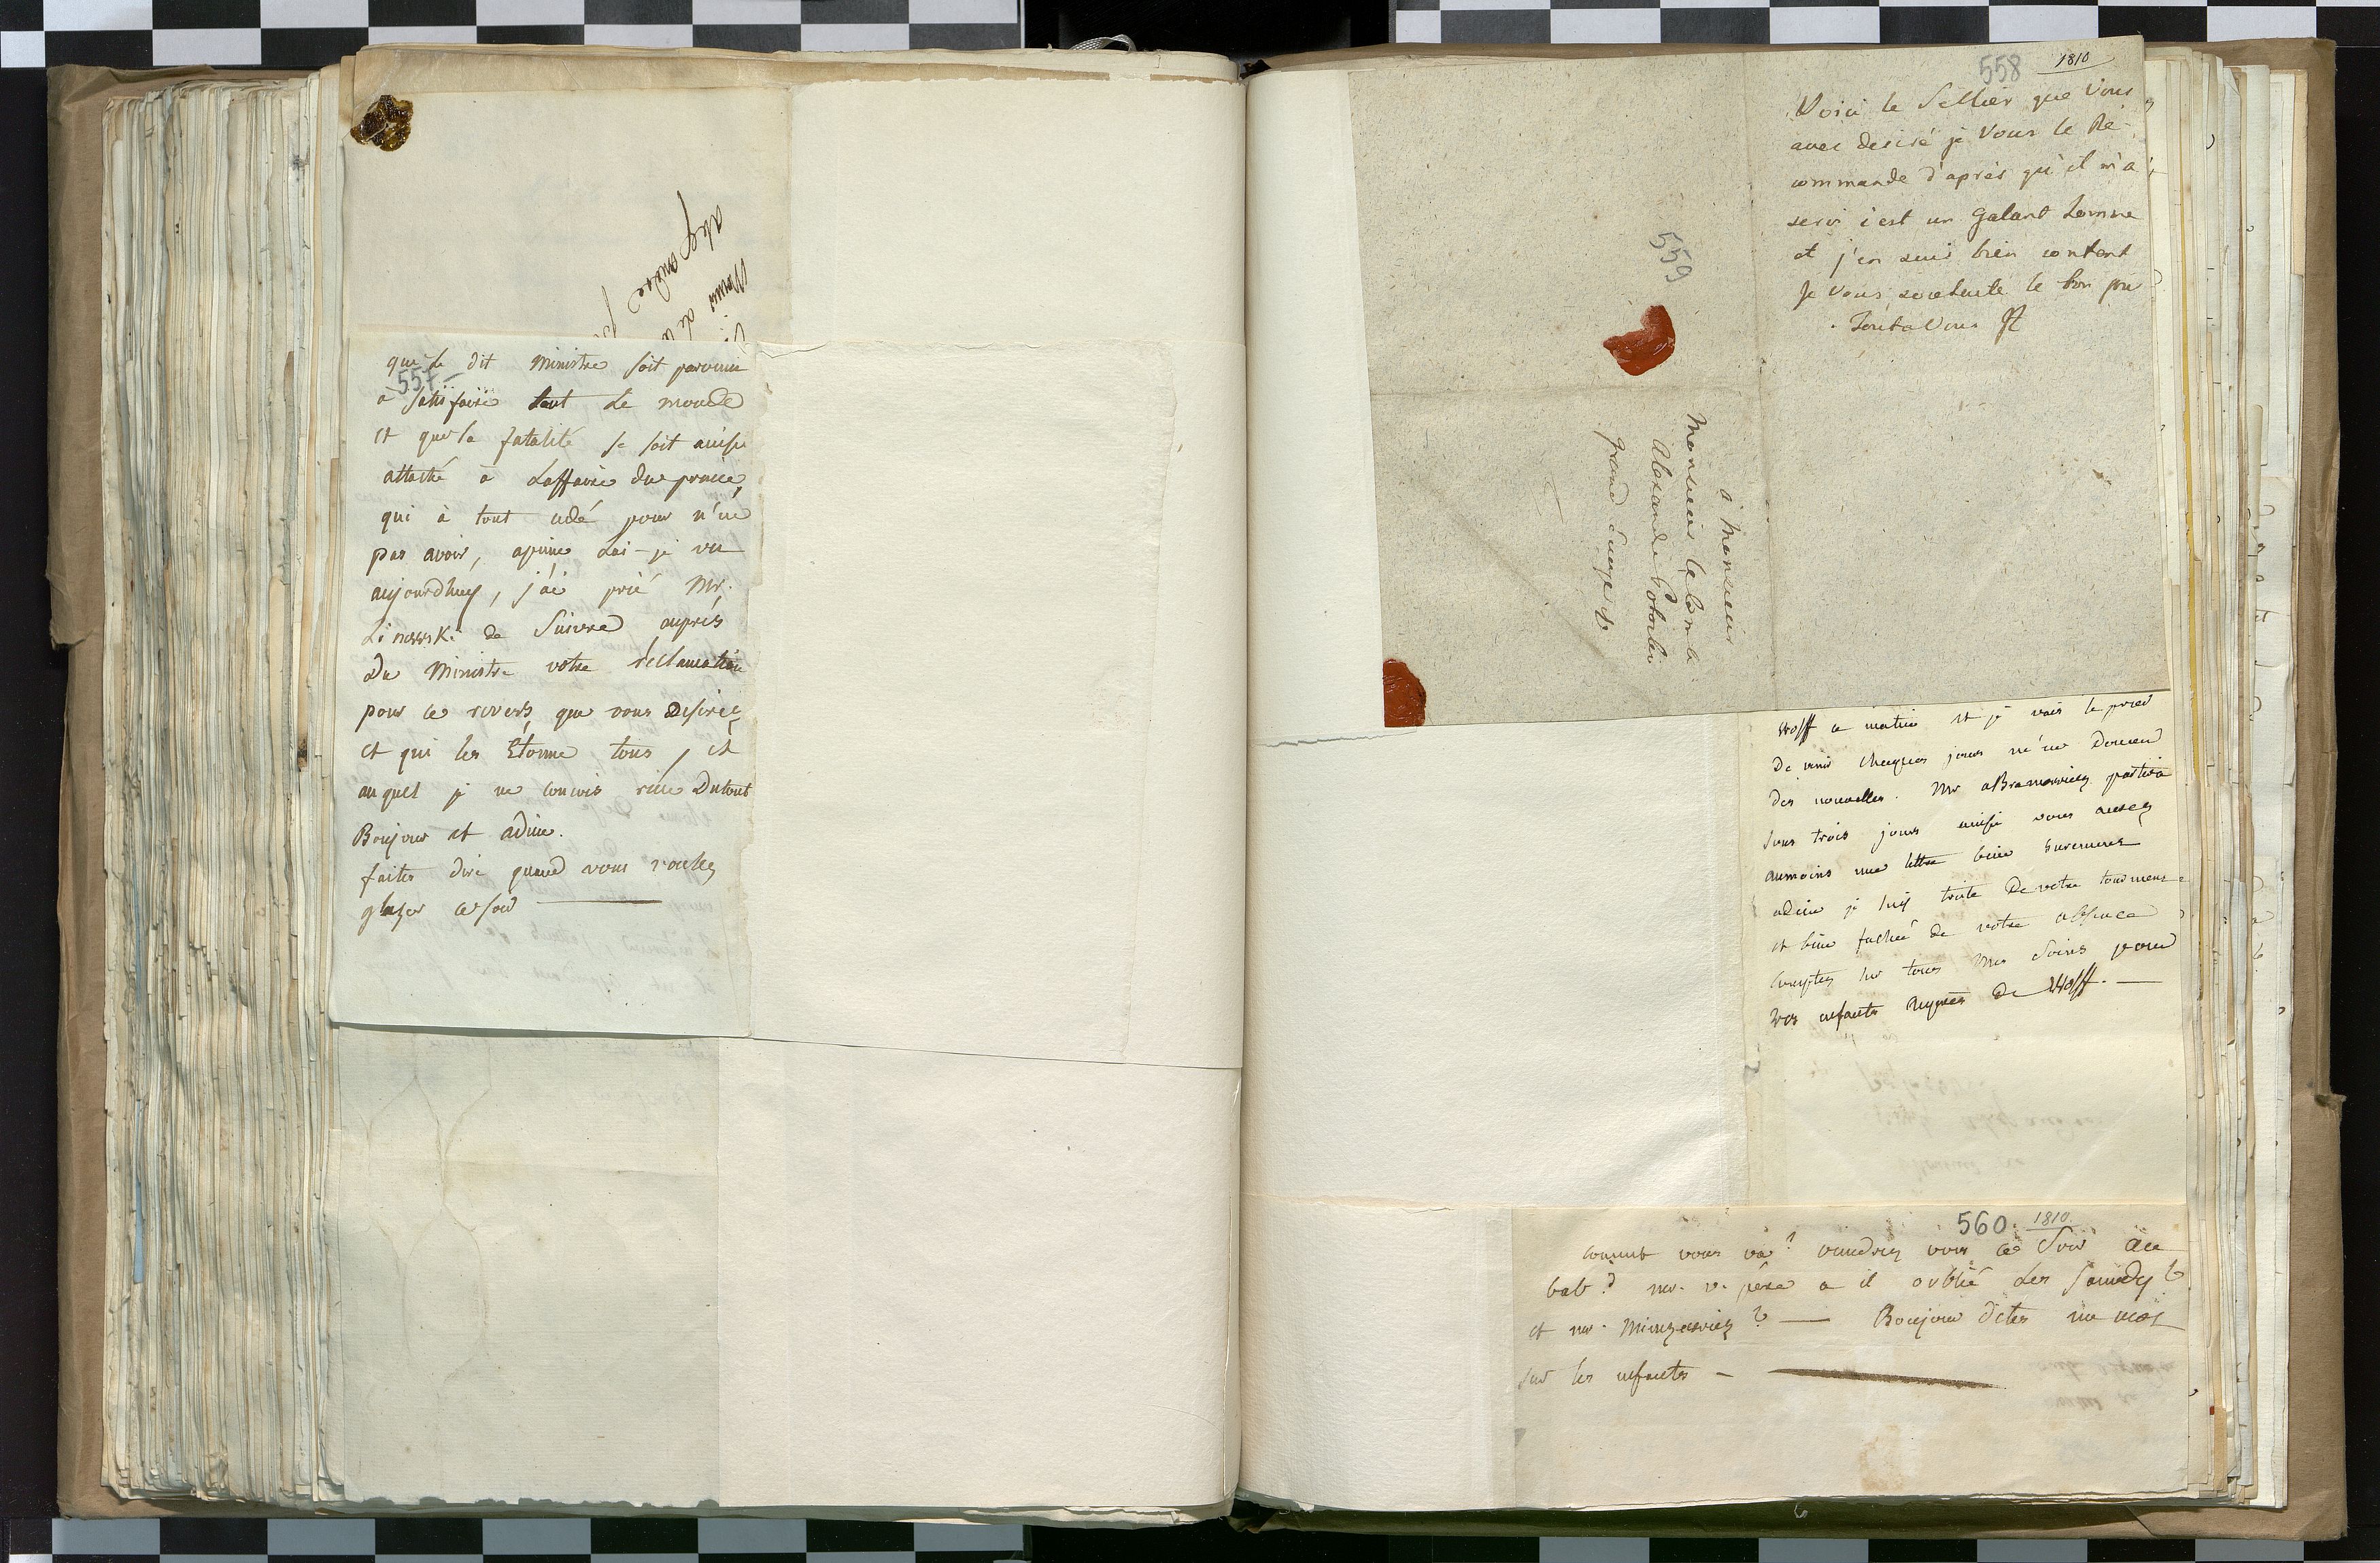 Alexandre
557
que le dit Ministre soit parvenu
a satisfaire tout le monde
et que la fatalité se soit aussi
attaché à l'affaire du prince,
qui à tout cedé pour n'en
pas avoir, apeine l'ai-je vu
aujourdhuy, j'ai prié Mr.
Linowski de suivre auprès
du Ministre votre réclamation
pour ce revers, que vous desirez
et qui les étonne tous, et
auquel je ne concois rien dutout
Bonjour et adieu.
faites dire quand vous voulez
ce soir
558 1810
Voici le Sellier que Vous
avez desiré je Vous le Re-
commande d'après qu'il m'a
servi c'est un galant homme
et j'en suis bien content
Je vous souhaite le bon jour
Tout a Vous
559
à Monsieur
Monsieur le Comte
Alexandre Potocki
grand Ecuyer
Wolff ce matin et je vais le prier
de venir chaques jours m'en donner
des nouvelles. Mr Abramowicz partira
sous trois jours ainsi vous aurez
aumoins une lettre bien surement
adieu je suis triste de votre tourment
et bien fachée de votre absence
comptez sur tous mes soins pour
vos enfants auprès de Wolff.
560. 1810.
comment vous va? viendrez vous ce soir au
bab? mr. v. père a il oublié les samedy?
et mr. Mionczewicz? Bonjour dites un mot
sur les enfants